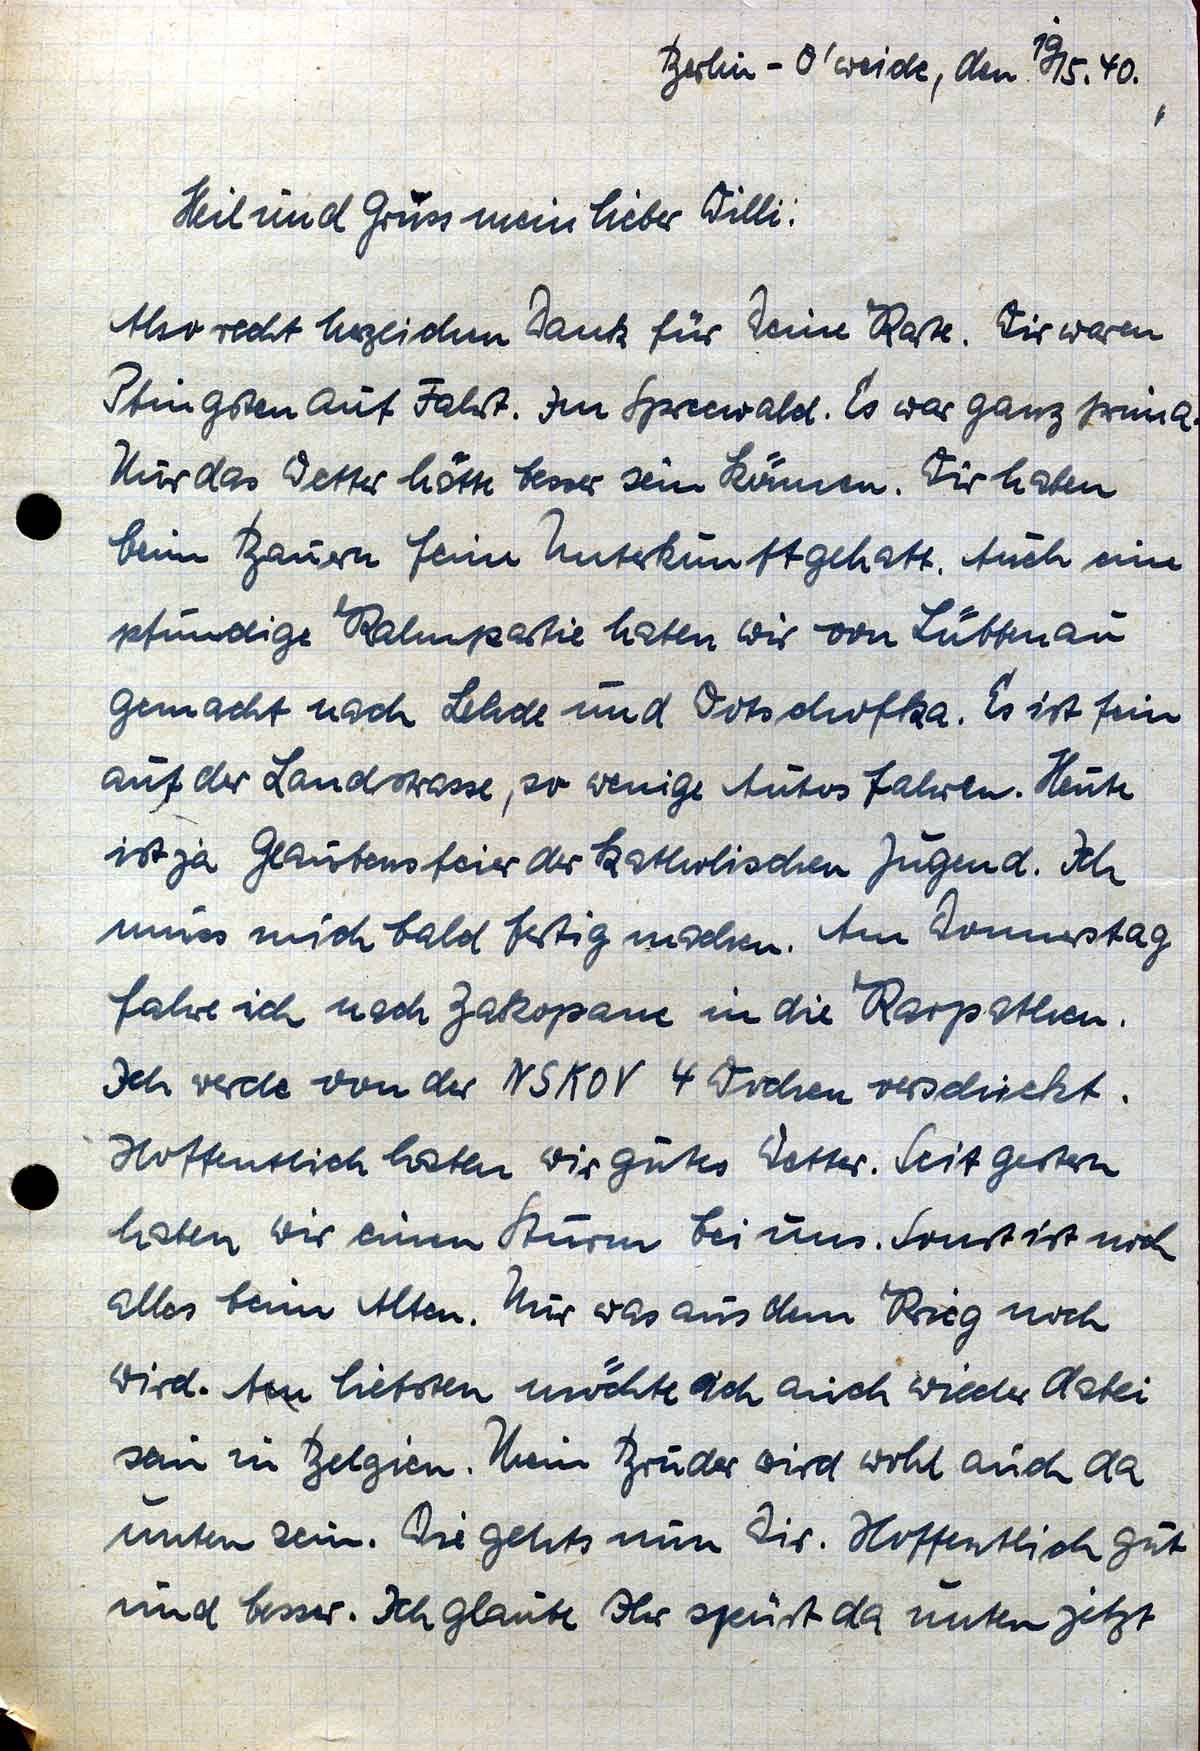 Berlin - O'weide, den 19/5.40.
Heil und Gruss mein lieber Willi!
Also recht herzlichen Dank für Deine Karte. Wir waren
Pfingsten auf Fahrt. Im Spreewald. Es war ganz prima.
Nur das Wetter hätte besser sein können. Wir haben
beim Bauern feine Unterkunft gehabt. Auch eine
pfundige Kahnpartie haben wir von Lübbenau
gemacht nach Lehde und Wotschofka. Es ist fein
auf der Landstrasse, so wenige Autos fahren. Heute
ist ja Glaubensfeier der katholischen Jugend. Ich
muss mich bald fertig machen. Am Donnerstag
fahre ich nach Zakopane in die Karpathen.
Ich werde von der NSKOV 4 Wochen verschickt.
Hoffentlich haben wir gutes Wetter. Seit gestern
haben wir einen Sturm bei uns. Sonst ist noch
alles beim Alten. Nur was aus dem Krieg noch
wird. Am liebsten möchte ich auch wieder dabei
sein in Belgien. Mein Bruder wird wohl auch da
unten sein. Wie gehts nun Dir. Hoffentlich gut
und besser. Ich glaube Ihr spürt da unten jetzt